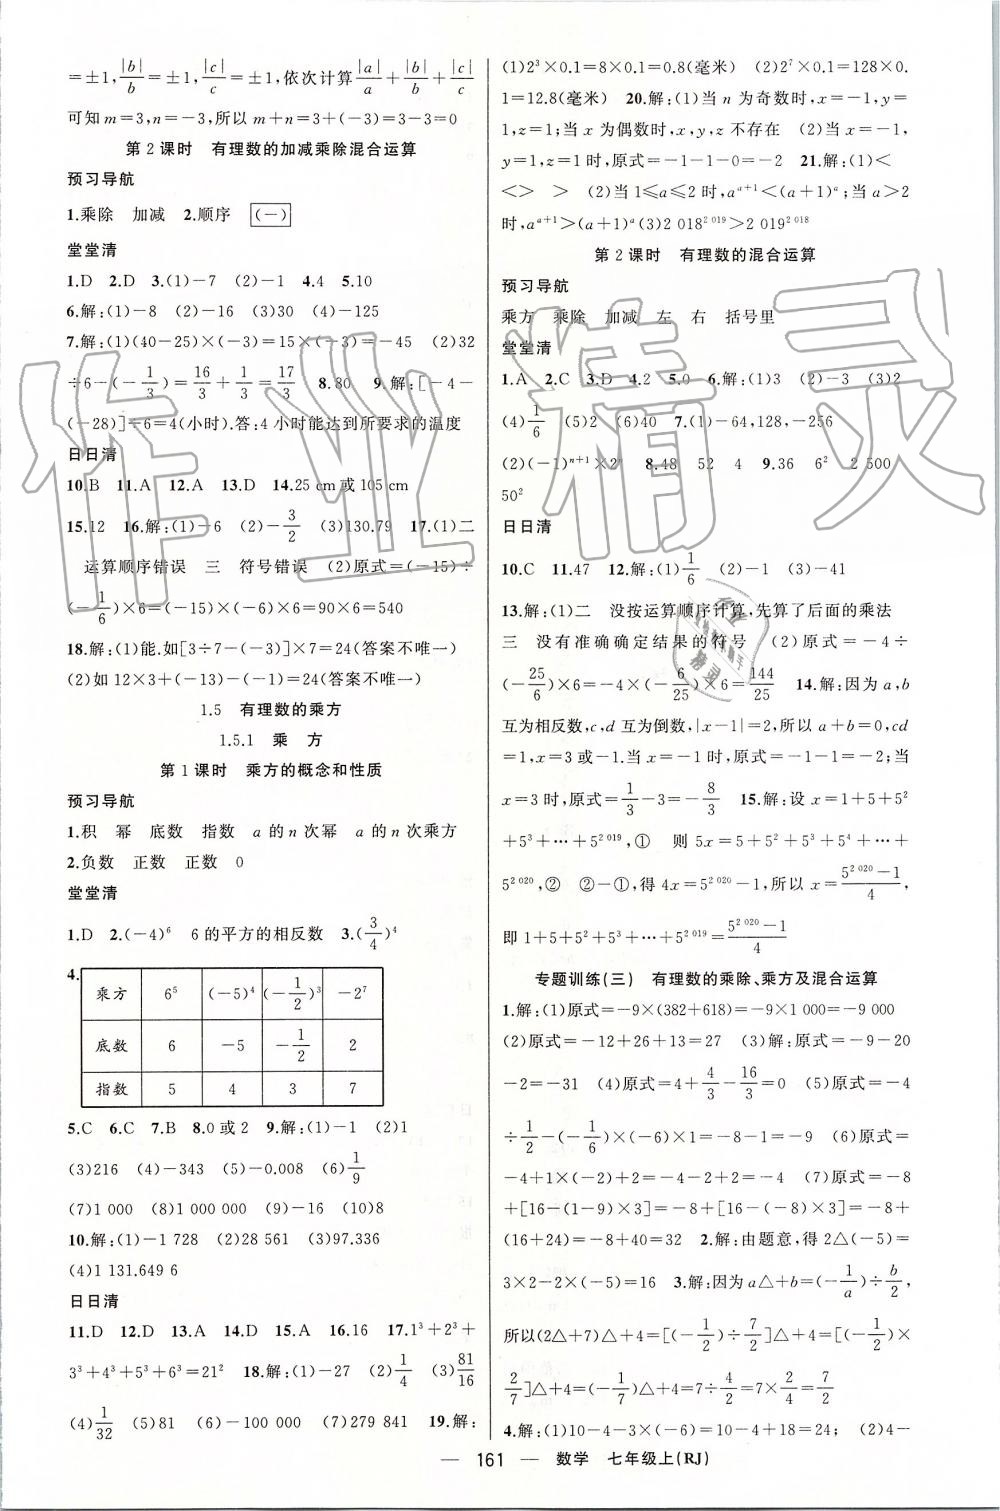 =±1,|b|/b=±1,|c|/c=±1,依次计算|a|/a+|b|/b+|c|/c
可知m=3,n=-3,所以m+n=3+(-3)=3-3=0
第2课时 有理数的加减乘除混合运算
预习导航
1.乘除 加减 2.顺序 (一)
堂堂清
1.D 2.D 3.(1)-7 (2)-1 4.4 5.10
6.解:(1)-8 (2)-16 (3)30 (4)-125
7.解:(1)(40-25)×(-3)=15×(-3)=-45 (2)32
÷6-(-1/3)=16/3+1/3=17/3 8.80 9.解:[-4-
(-28)]÷6=4(小时).答:4小时能达到所要求的温度
日日清
10.B 11.A 12.A 13.D 14.25 cm或105 cm
15.12 16.解:(1)-6 (2)-3/2 (3)130.79 17.(1)二
运算顺序错误 三 符号错误 (2)原式=(-15)÷
(-1/6)×6=(-15)×(-6)×6=90×6=540
18.解:(1)能.如[3÷7-(-3)]×7=24(答案不唯一)
(2)如12×3+(-13)-(-1)=24(答案不唯一)
1.5 有理数的乘方
1.5.1 乘 方
第1课时 乘方的概念和性质
预习导航
1.积 幂 底数 指数 a的n次幂 a的n次乘方
2.负数 正数 正数 0
堂堂清
1.D 2.(-4)⁶ 6的平方的相反数 3.(3/4)⁴
4.
乘方 6⁵ (-5)⁴ (-1/2)³ -2⁷
底数 6 -5 -1/2 2
指数 5 4 3 7
5.C 6.C 7.B 8.0或2 9.解:(1)-1 (2)1
(3)216 (4)-343 (5)-0.008 (6)1/9
(7)1 000 (8)1 000 000 (9)-16 (10)8
10.解:(1)-1 728 (2)28 561 (3)97.336
(4)1 131.649 6
日日清
11.D 12.D 13.A 14.D 15.A 16.16 17.1³+2³+
3³+4³+5³+6³=21² 18.解:(1)-27 (2)1/4 (3)81/16
(4)1/32 (5)81 (6)-100 000 (7)279 841 19.解:
(1)2³×0.1=8×0.1=0.8(毫米) (2)2⁷×0.1=128×0.
1=12.8(毫米) 20.解:(1)当n为奇数时,x=-1,y=
1,z=1;当x为偶数时,x,y,z不存在 (2)当x=-1,
y=1,z=1时,原式=-1-1-0=-2 21.解:(1)<
<> > (2)当1≤a≤2时,aᵃ⁺¹<(a+1)ᵃ;当a>2
时,aᵃ⁺¹>(a+1)ᵃ(3)2 018² ⁰¹⁹>2 019² ⁰¹⁸
第2课时 有理数的混合运算
预习导航
乘方 乘除 加减 左 右 括号里
堂堂清
1.A 2.C 3.D 4.2 5.0 6.解:(1)3 (2)-3 (3)2
(4)1/6 (5)2 (6)40 7.(1)-64,128,-256
(2)(-1)ⁿ⁺¹×2ⁿ 8.48 52 4 9.36 6² 2 500
50²
日日清
10.C 11.47 12.解:(1)1/6 (2)-1 (3)-41
13.解:(1)二 没按运算顺序计算,先算了后面的乘法
三 没有准确确定结果的符号 (2)原式=-4÷
(-25/6)×6=-4×(-6/25)×6=144/25 14.解:因为a,b
互为相反数,c,d互为倒数,|x-1|=2,所以a+b=0,cd
=1,x=3或x=-1.当x=-1时,原式=1/3+1=4/3;当
x=3时,原式=1/3-3=-8/3 15.解:设x=1+5+5²
+5³+…+5² ⁰¹⁹,① 则5x=5+5²+5³+5⁴+…+
5² ⁰²⁰,② ②-①,得4x=5² ⁰²⁰-1,所以x=(5² ⁰²⁰-1)/4,
即1+5+5²+5³+…+5² ⁰¹⁹=(5² ⁰²⁰-1)/4
专题训练(三) 有理数的乘除、乘方及混合运算
1.解:(1)原式=-9×(382+618)=-9×1 000=-9 000
(2)原式=-12+26+13=27 (3)解:原式=-9-20
-2=-31 (4)原式=4+4/3-16/3=0 (5)原式=-4
÷1/2-(-1/6)×(-6)×1=-8-1=-9 (6)原式=
-4+1×(-2)+2=-4-2+2=-4 (7)原式=-8
+[16-(1-9)×3]=-8+[16-(-8)×3]=-8+
(16+24)=-8+40=32 2.解:由题意,得2△(-5)=
3×2-2×(-5)=16 3.解:因为a△+b=(-1/a)÷b/2,
所以(2△+7)△+4=[(-1/2)÷7/2]△+4=[(-1/2)×
2/7]△+4=(-1/7)△+4=7÷4/2=7×2/4=7/2
4.解:(1)10-4-3×(-6)=10-4+18=24 (2)4-
161 数学 七年级上(RJ)
作业精灵